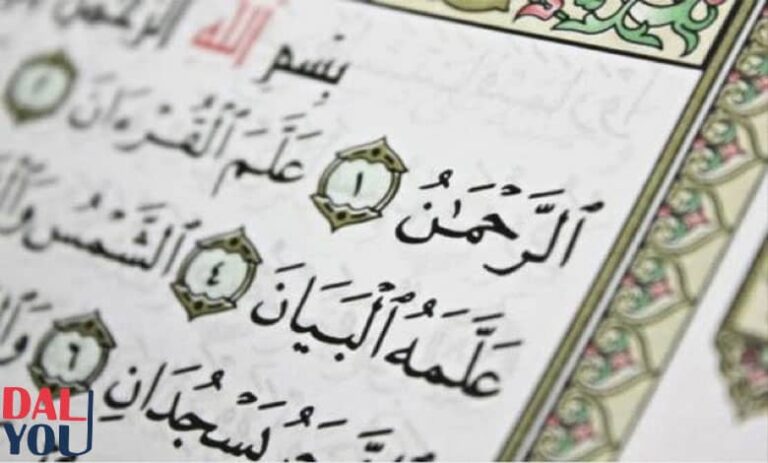 بِسْمِ ٱللَّهِ ٱلرَّحْمَٰنِ
ٱلرَّحْمَٰنُ ١ عَلَّمَ ٱلْقُرْءَانَ ٢
عَلَّمَهُ ٱلْبَيَانَ ٤ ٱلشَّمْسُ
يَسْجُدَانِ ٦
DAL
YOU